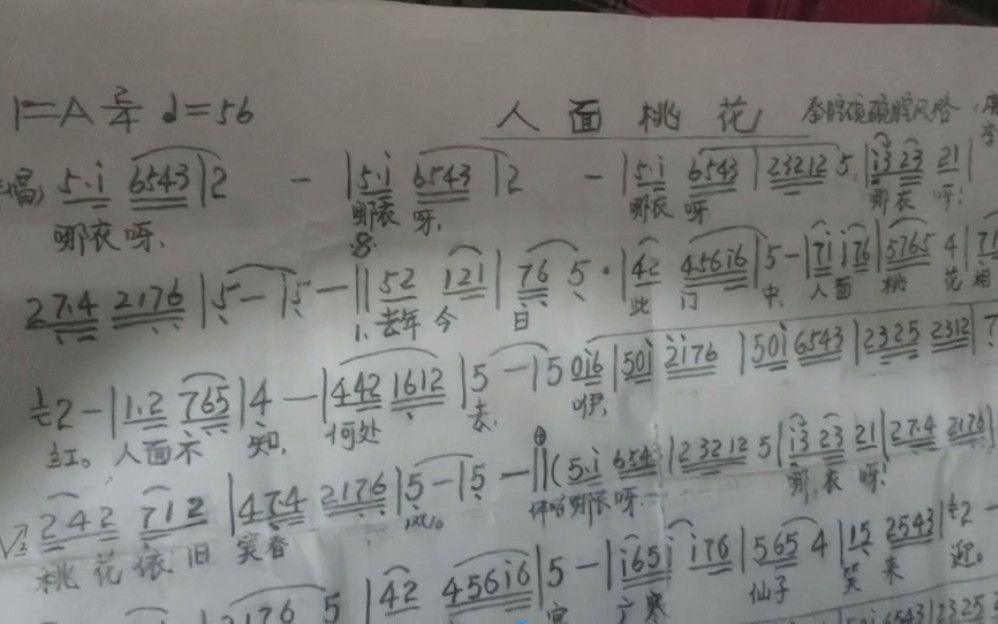 1=A 2/4 ♩=56 人面桃花 秦腔碗碗腔风格
唱) 5·i 6543|2 - |5·i 6543|2 - |5·i 6543|23212 5.|i3 23 21|
哪衣呀, 哪衣呀, 哪衣呀 哪衣呀!
27·4 2176|5-|5-‖52 121|76 5·|42 456i6|5-|7i i76|5765 4|7i
1.去年今日 此门中, 人面桃花相
2-|1.2 765|4-|442 1612|5-|5 0i6|50i 2i76|50i 6543|2325 2312|7
红。人面不知, 何处去, 咿,
242 712|474 2176|5-|5-‖(5·i 654|23212 5|i3 23 21|27·4 2176|
桃花依旧笑春 伴唱哪衣呀 哪衣呀!
2176 5|42 456i6|5-|i65i i76|565 4|15 2543|2-
宫 广寒 仙子笑来迎。
50i 6543|2325